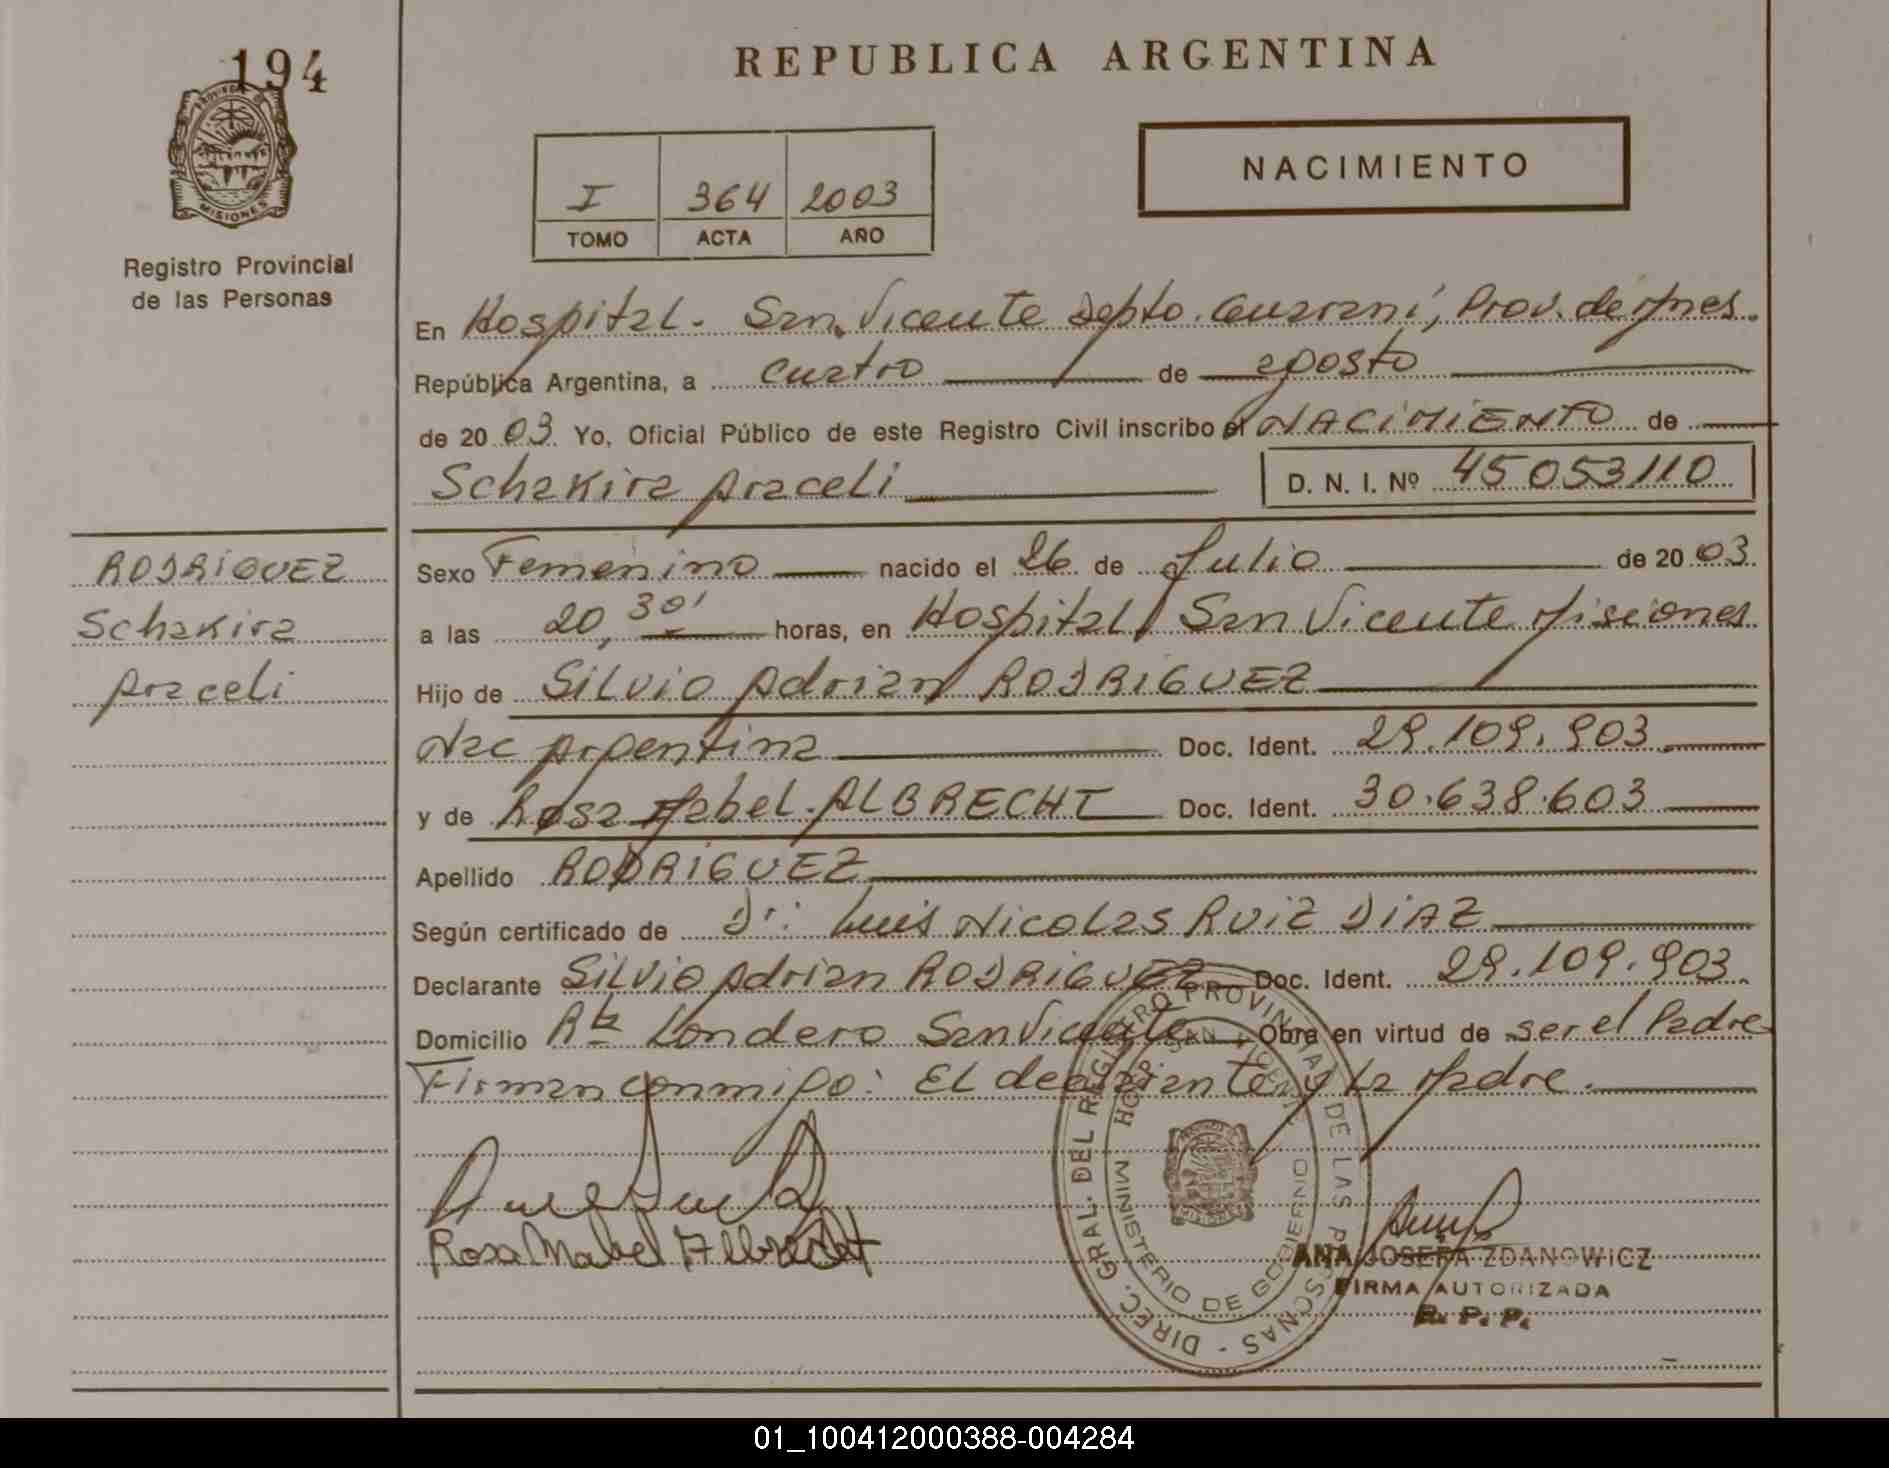 194
PROVINCIA DE
MISIONES
Registro Provincial
de las Personas
RODRIGUEZ
Schakira
Araceli
REPUBLICA ARGENTINA
NACIMIENTO
I 364 2003
TOMO ACTA AÑO
En Hospital. San Vicente Depto. Guarani, Prov. de Mnes.
República Argentina, a cuatro de agosto
de 2003 Yo, Oficial Público de este Registro Civil inscribo el NACIMIENTO de
Schakira Araceli D. N. I. Nº 45053110
Sexo Femenino nacido el 26 de Julio de 2003
a las 20,30' horas, en Hospital San Vicente Misiones
Hijo de Silvio Adrian RODRIGUEZ
Nac Argentina Doc. Ident. 29.109.903
y de Rosa Mabel ALBRECHT Doc. Ident. 30.638.603
Apellido RODRIGUEZ
Según certificado de Dr: Luis Nicolas RUIZ DIAZ
Declarante Silvio Adrian RODRIGUEZ Doc. Ident. 29.109.903
Domicilio Londero San Vicente Obra en virtud de ser el Padre
Firman conmigo: El declarante y la Madre.
Rosa Mabel Albrecht
DIREC. GRAL. DEL REGISTRO PROVINCIAL DE LAS PERSONAS
HOSP. SAN VICENTE
MINISTERIO DE GOBIERNO
MISIONES
ANA JOSEFA ZDANOWICZ
FIRMA AUTORIZADA
R. P. P.
01_100412000388-004284